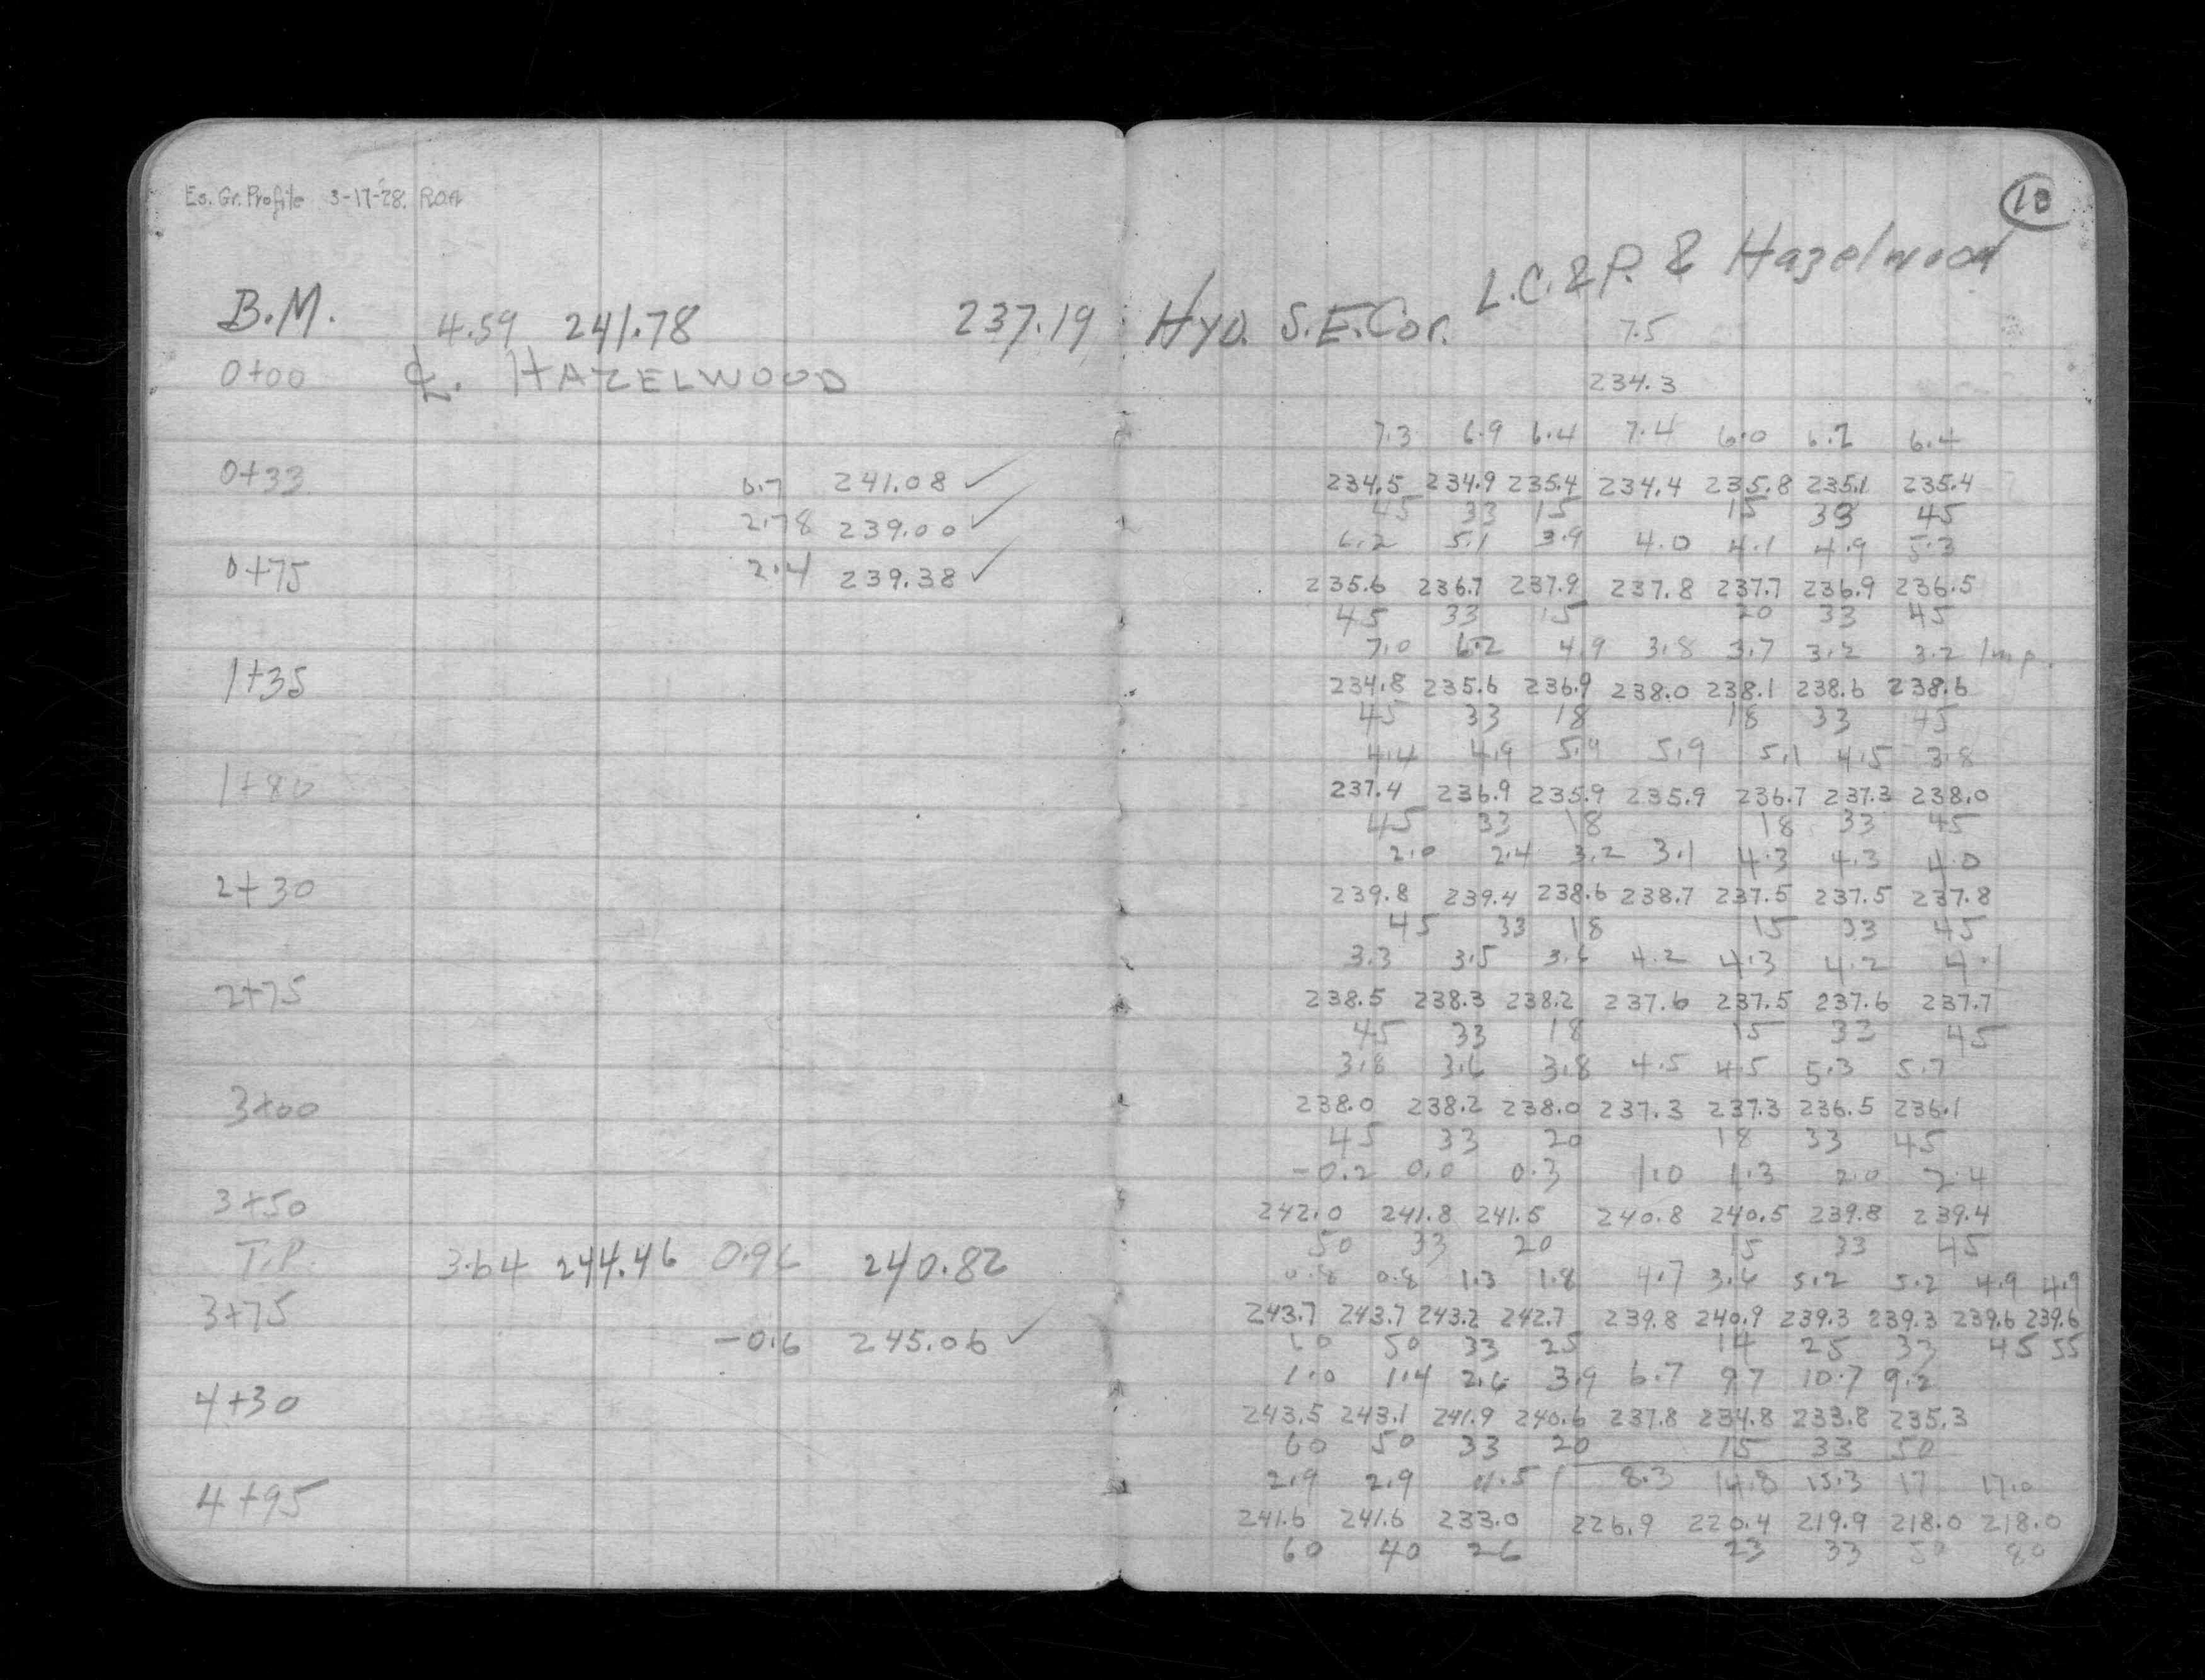 Es. Gr. Profile 3-17-28. ROA
10
L.C.&P. & Hazelwood
B.M. 4.59 241.78 237.19 Hyd. S.E. Cor.
7.5
0+00 ℄. HAZELWOOD 234.3
7.3 6.9 6.4 7.4 6.0 6.7 6.4
0+33 0.7 241.08 ✓ 234.5 234.9 235.4 234.4 235.8 235.1 235.4
2.78 239.00 ✓ 45 33 15 15 33 45
6.2 5.1 3.9 4.0 4.1 4.9 5.3
0+75 2.4 239.38 ✓ 235.6 236.7 237.9 237.8 237.7 236.9 236.5
45 33 15 20 33 45
7.0 6.2 4.9 3.8 3.7 3.2 3.2 Imp.
1+35 234.8 235.6 236.9 238.0 238.1 238.6 238.6
45 33 18 18 33 45
4.4 4.9 5.9 5.9 5.1 4.5 3.8
1+80 237.4 236.9 235.9 235.9 236.7 237.3 238.0
45 33 18 18 33 45
2.0 2.4 3.2 3.1 4.3 4.3 4.0
2+30 239.8 239.4 238.6 238.7 237.5 237.5 237.8
45 33 18 15 33 45
3.3 3.5 3.6 4.2 4.3 4.2 4.1
2+75 238.5 238.3 238.2 237.6 237.5 237.6 237.7
45 33 18 15 33 45
3.8 3.6 3.8 4.5 4.5 5.3 5.7
3+00 238.0 238.2 238.0 237.3 237.3 236.5 236.1
45 33 20 18 33 45
-0.2 0.0 0.3 1.0 1.3 2.0 2.4
3+50 242.0 241.8 241.5 240.8 240.5 239.8 239.4
T.P. 3.64 244.46 0.96 240.82 50 33 20 15 33 45
0.8 0.8 1.3 1.8 4.7 3.6 5.2 5.2 4.9 4.9
3+75 243.7 243.7 243.2 242.7 239.8 240.9 239.3 239.3 239.6 239.6
-0.6 245.06 ✓ 60 50 33 25 14 25 33 45 55
1.0 1.4 2.6 3.9 6.7 9.7 10.7 9.2
4+30 243.5 243.1 241.9 240.6 237.8 234.8 233.8 235.3
60 50 33 20 15 33 50
2.9 2.9 11.5 8.3 14.8 15.3 17 17.0
4+95 241.6 241.6 233.0 226.9 220.4 219.9 218.0 218.0
60 40 26 23 33 50 80